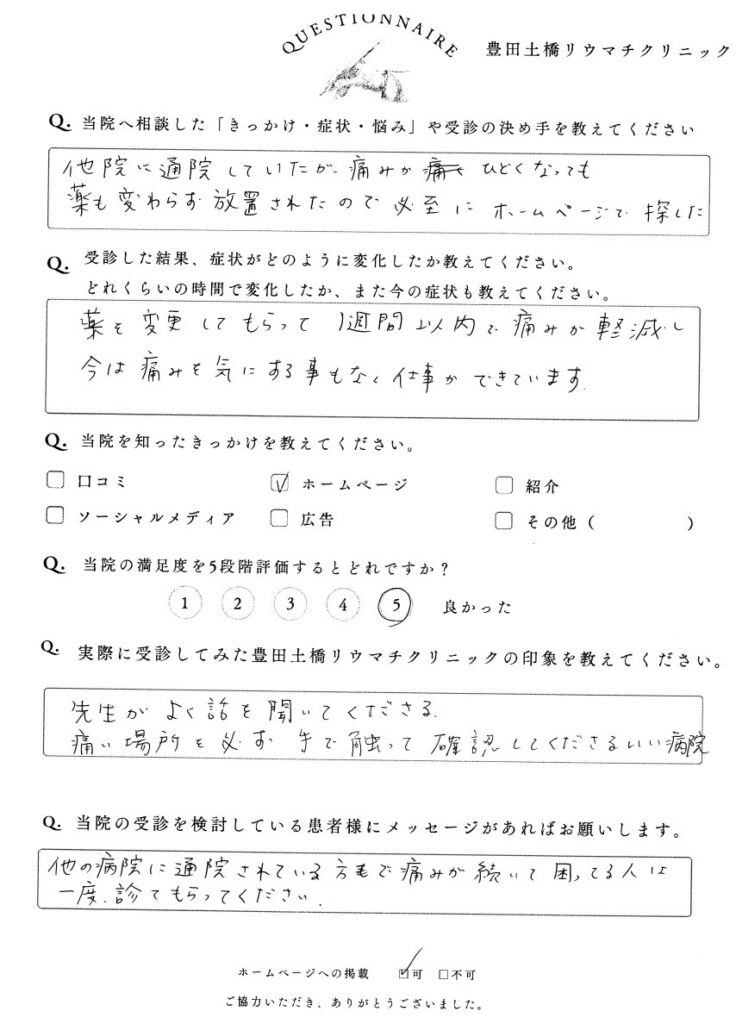 QUESTIONNAIRE
豊田土橋リウマチクリニック
Q. 当院へ相談した「きっかけ・症状・悩み」や受診の決め手を教えてください
他院に通院していたが、痛みが ひどくなっても
薬も変わらず放置されたので必至にホームページで探した
Q. 受診した結果、症状がどのように変化したか教えてください。
どれくらいの時間で変化したか、また今の症状も教えてください。
薬を変更してもらって1週間以内で痛みが軽減し
今は痛みを気にする事もなく仕事ができています。
Q. 当院を知ったきっかけを教えてください。
口コミ ホームページ 紹介
ソーシャルメディア 広告 その他（ ）
Q. 当院の満足度を5段階評価するとどれですか？
1 2 3 4 5 良かった
Q. 実際に受診してみた豊田土橋リウマチクリニックの印象を教えてください。
先生がよく話を聞いてくださる。
痛い場所を必ず手で触って確認してくださるいい病院
Q. 当院の受診を検討している患者様にメッセージがあればお願いします。
他の病院に通院されている方もで痛みが続いて困ってる人は
一度、診てもらってください。
ホームページへの掲載 可 不可
ご協力いただき、ありがとうございました。